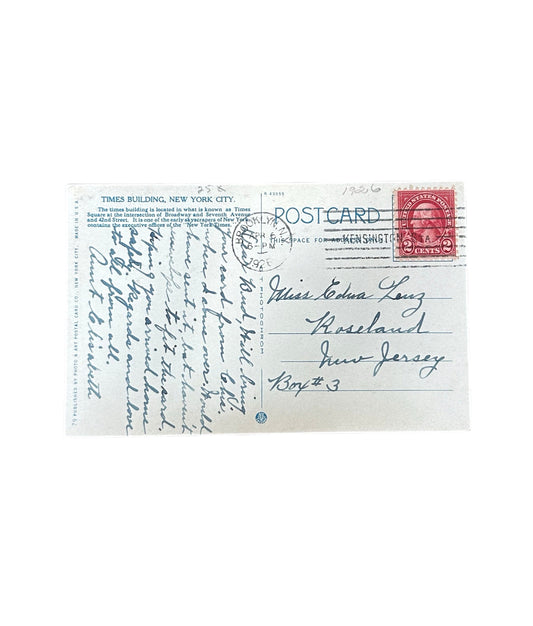 25¢
1926
TIMES BUILDING, NEW YORK CITY.
The times building is located in what is known as Times
Square at the intersection of Broadway and Seventh Avenue
and 42nd Street. It is one of the early skyscrapers of New York
contains the executive offices of the "New York Times.
POST CARD
THIS SPACE FOR
BROOKLYN, N.Y.
6
PM
1926
KENSINGTON STA.
UNITED STATES POSTAGE
2 CENTS 2
Miss Edna Lenz
Roseland
New Jersey
Box #3
Will bring
your card from Cal.
when I come over. Would
have sent it, but haven't
envelope to fit the card.
Hoping you arrived home
safely. Regards and love
to all from all.
Aunt Elizabeth
PUBLISHED BY PHOTO & ART POSTAL CARD CO., NEW YORK CITY. MADE IN U.S.A.